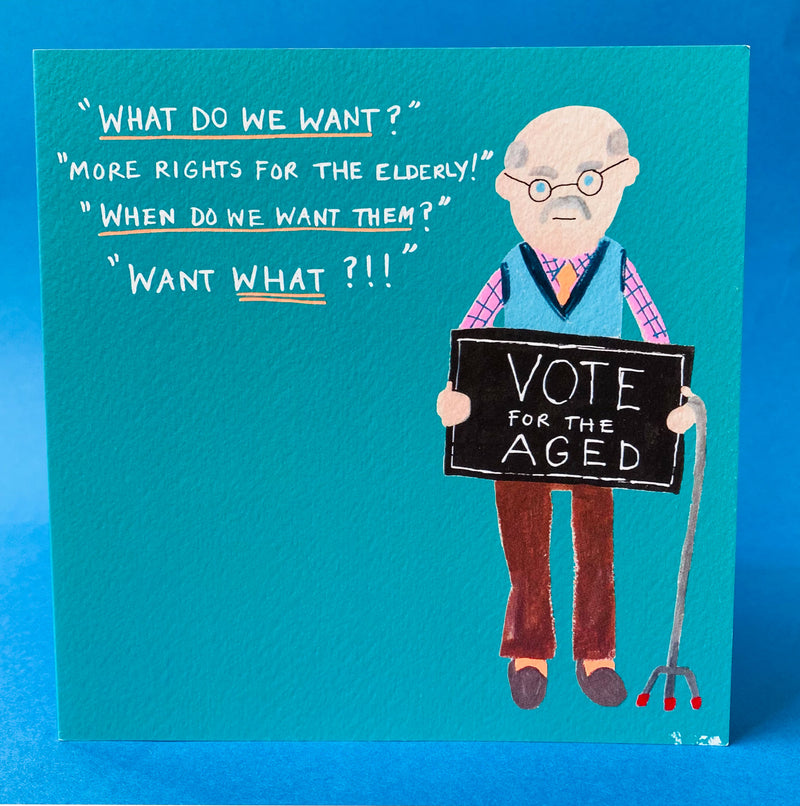 "WHAT DO WE WANT?"
"MORE RIGHTS FOR THE ELDERLY!"
"WHEN DO WE WANT THEM?"
"WANT WHAT?!!"
VOTE
FOR THE
AGED